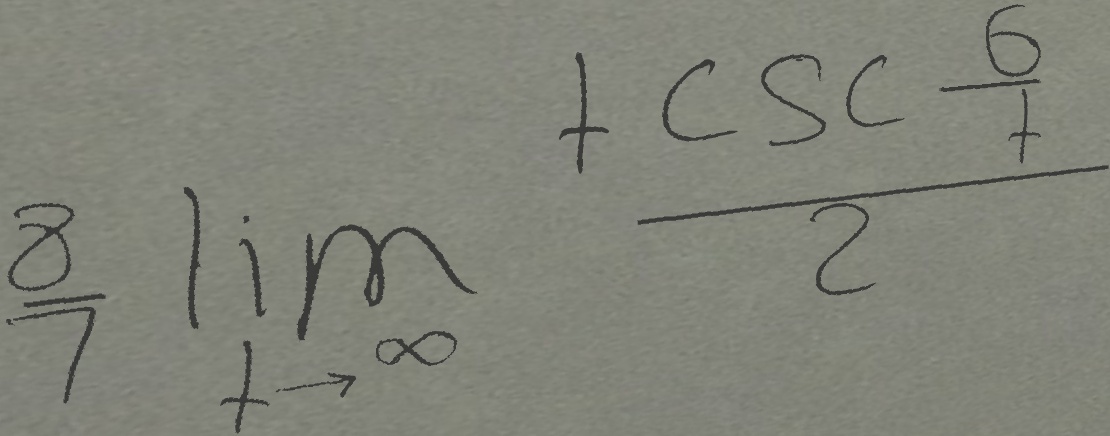 \frac{8}{7} \lim_{t \to \infty} \frac{t \csc \frac{6}{t}}{2}